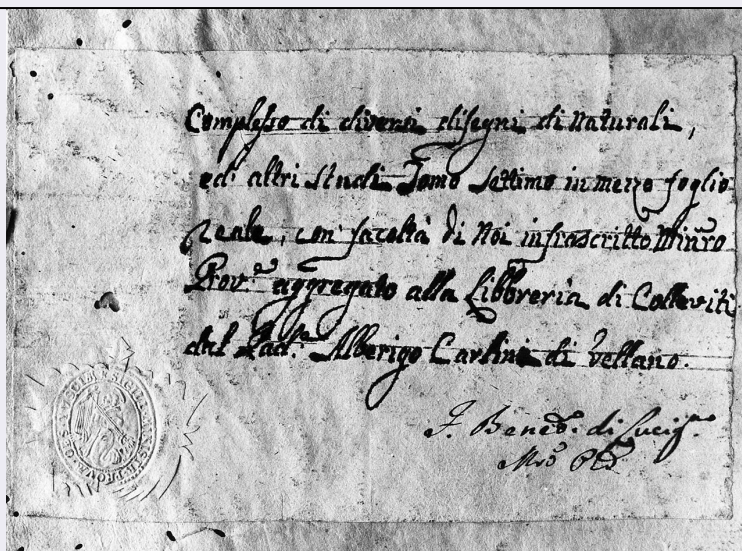 Complesso di diversi disegni di Naturali,
ed' altri studi Tomo settimo in mezzo foglio
Reale, con' facoltà di Noi infrascritto Minr̃o
Prov.e aggregato alla Libbreria di Colleviti
dal Pad.e Alberigo Carlini di Vellano.
F. Bened.o di Lucig.no
Mrõ Ple